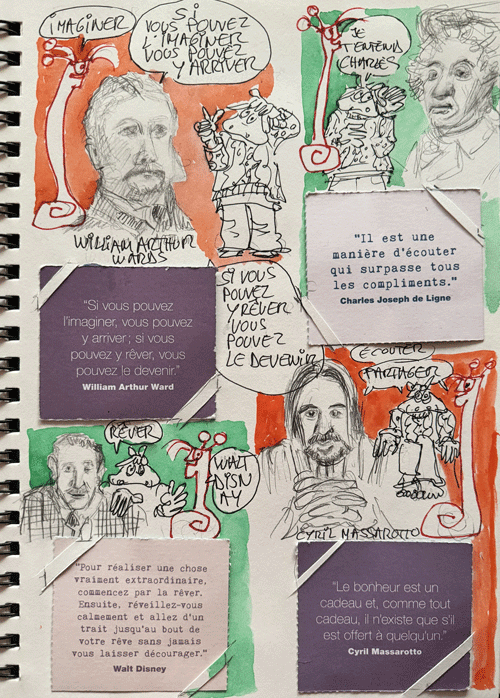 IMAGINER
SI
VOUS POUVEZ
L'IMAGINER
VOUS POUVEZ
Y ARRIVER
WILLIAM ARTHUR
WARDS
"Si vous pouvez
l'imaginer, vous pouvez
y arriver ; si vous
pouvez y rêver, vous
pouvez le devenir."
William Arthur Ward
JE
T'ENTENDS
CHARLES
"Il est une
manière d'écouter
qui surpasse tous
les compliments."
Charles Joseph de Ligne
SI VOUS
POUVEZ
Y RÊVER
VOUS
POUVEZ
LE DEVENIR
RÊVER
WALT
DISN
AY
"Pour réaliser une chose
vraiment extraordinaire,
commencez par la rêver.
Ensuite, réveillez-vous
calmement et allez d'un
trait jusqu'au bout de
votre rêve sans jamais
vous laisser décourager."
Walt Disney
ECOUTER
PARTAGER
CYRIL MASSAROTTO
"Le bonheur est un
cadeau et, comme tout
cadeau, il n'existe que s'il
est offert à quelqu'un."
Cyril Massarotto